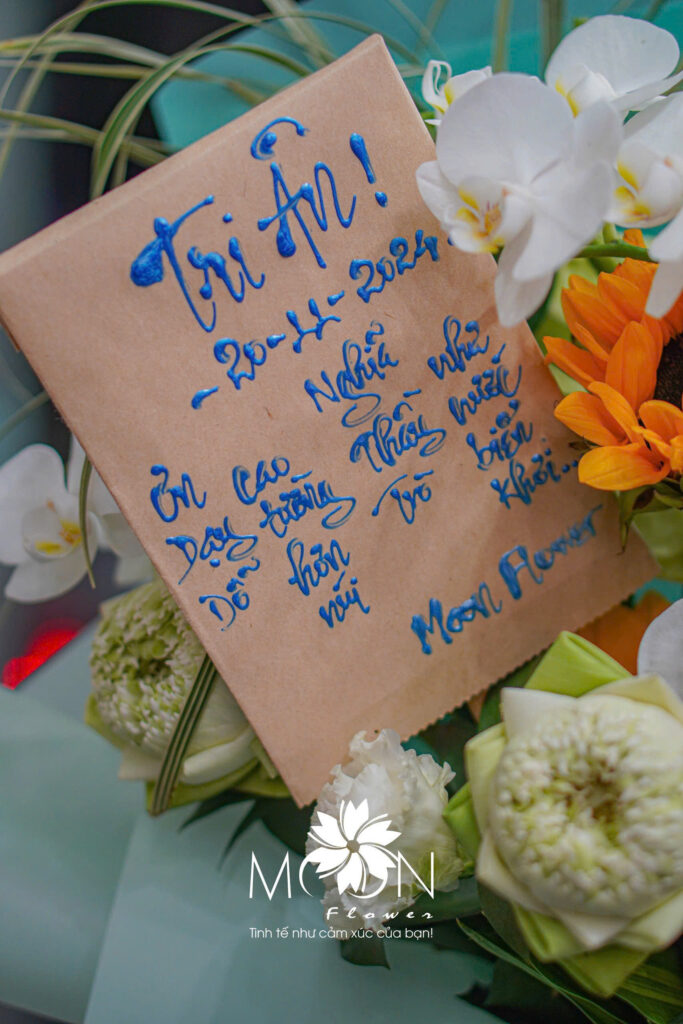 Tri Ân!
- 20-11-2024 -
Ơn Dạy Dỗ
cao tường hơn núi
Nghĩa Thầy Trò
như nước biển khơi...
Moon Flower
MOON
Flower
Tinh tế như cảm xúc của bạn!